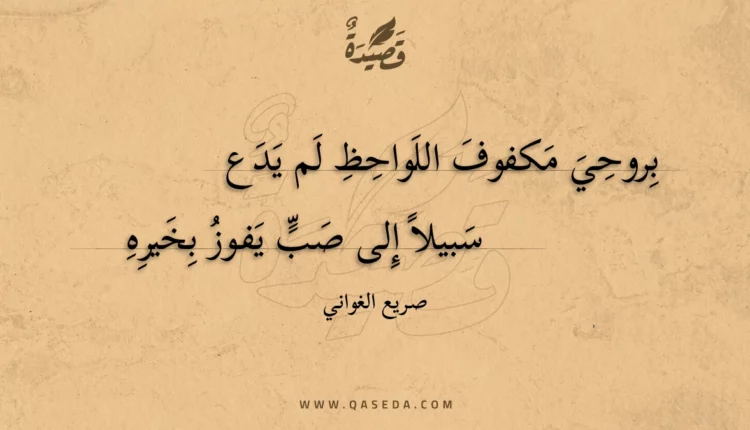 قَصِيْدَةٌ
بِروحِيَ مَكفوفَ اللَواحِظِ لَم يَدَع
سَبيلاً إِلى صَبٍّ يَفوزُ بِخَيرِهِ
صريع الغواني
WWW.QASEDA.COM